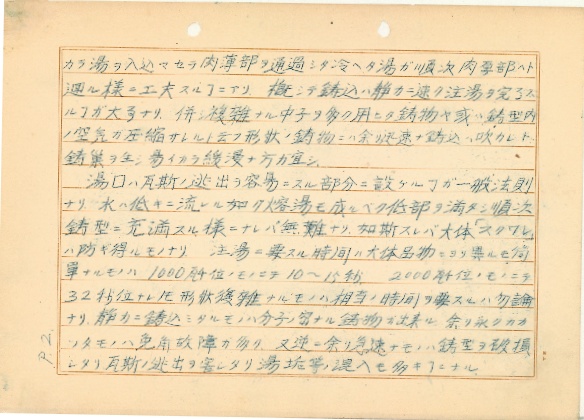 カラ湯ヲ入込マセテ肉薄部ヲ通過シタ冷ヘタ湯ガ順次肉厚部ヘト
廻ル様ニ工夫スルヿニアリ 概シテ鋳込ハ静カニ速ク注湯ヲ完了ス
ルヿガ大事ナリ、併シ複雑ナル中子ヲ多ク用ヒタ鋳物ヤ或ハ鋳型内
ノ空気ガ圧縮サレル下云フ形状ノ鋳物ニハ余リ迅速ナ鋳込ハ吹カレト
鋳巣ヲ生ジ易イカラ緩漫ナ方カ宜シ
湯口ハ瓦斯ノ逃出ヲ容易ニスル部分ニ設ケルヿガ一般法則
ナリ 水ハ低キニ流レル如ク熔湯モ成ルベク低部ヲ満タシ順次
鋳型ニ充満スル様ニナレバ無難ナリ、如斯スレバ大体「スクワレ」
ハ防ギ得ルモノナリ 注湯ニ要スル時間ハ大体品物ニヨリ異ルモ簡
単ナルモノハ 1000瓩位ノモノニテ10〜15秒、2000瓩位ノモノニテ
32秒位ナレ𪜈形状複雑ナルモノハ相当ノ時間ヲ要スルハ勿論
ナリ、静カニ鋳込ミタルモノハ分子ノ密ナル鋳物ガ出来ル 余リ永クカカ
ツタモノハ兎角故障カ多リ 又逆ニ余リ急速ナモノハ鋳型ヲ破損
シタリ瓦斯ノ逃出ヲ害シタリ湯垢等ノ混入モ多キヿニナル
P.2.